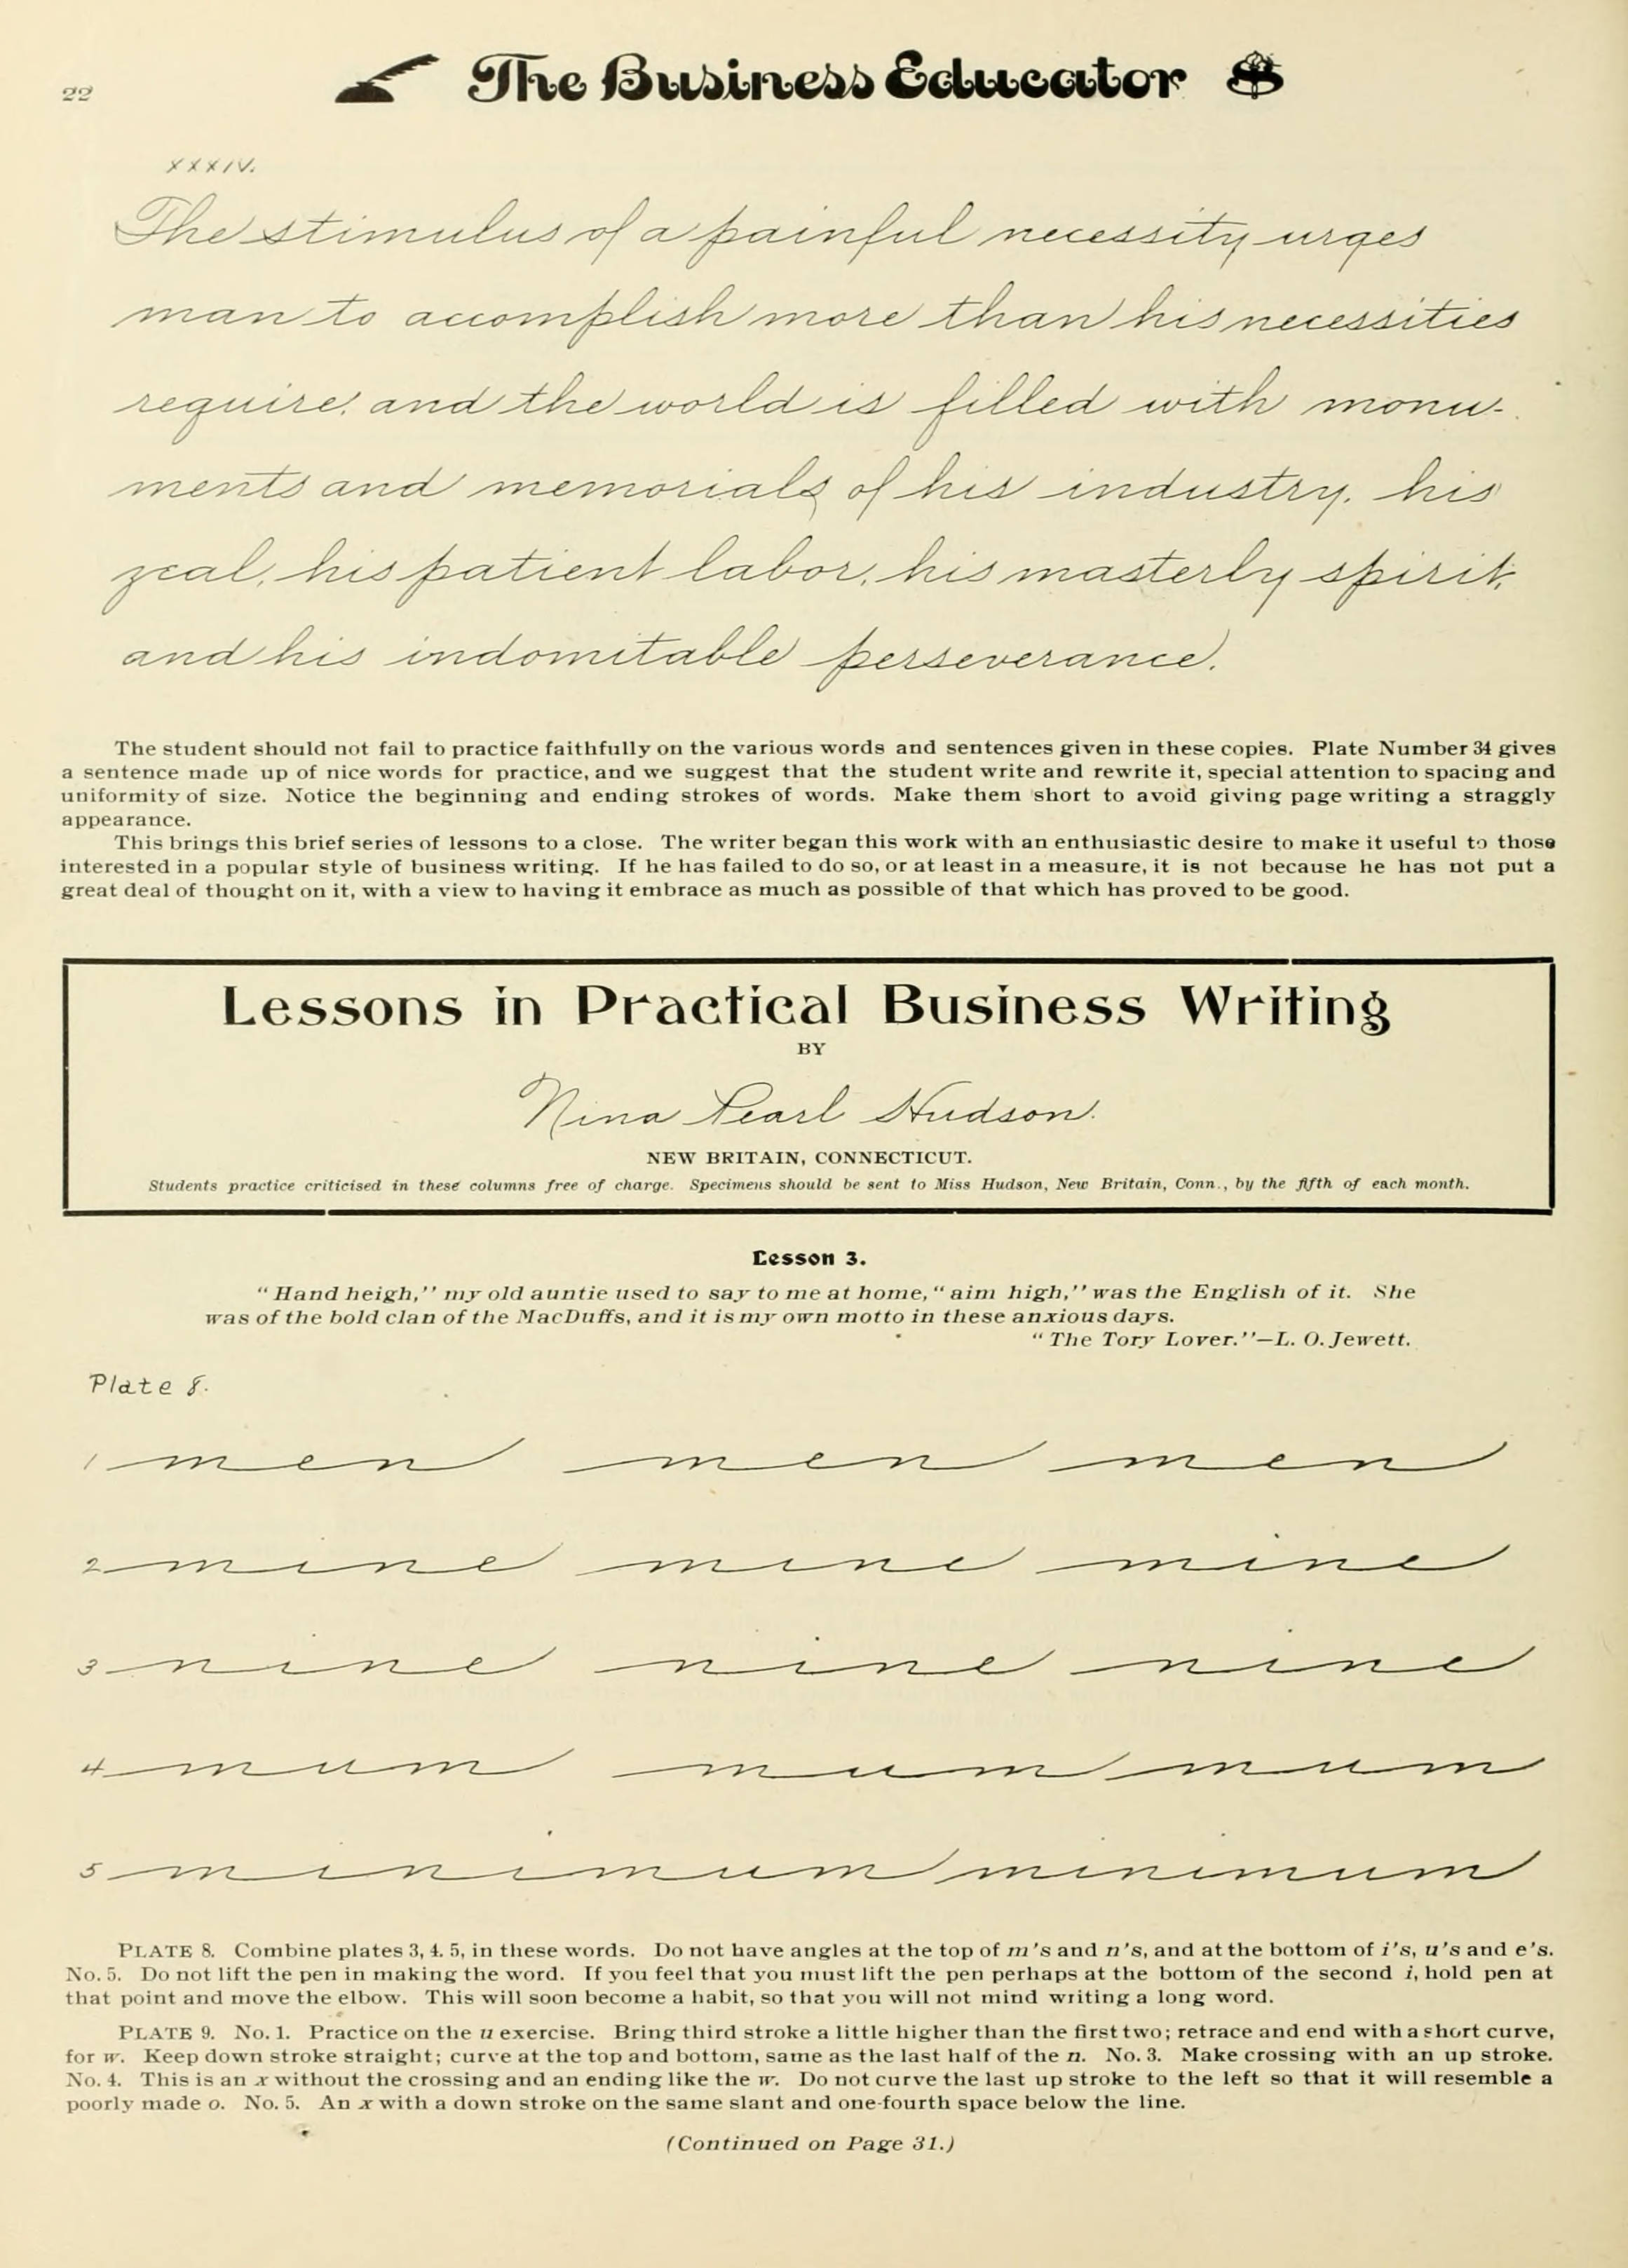 22
The Business Educator
XXXIV.
The stimulus of a painful necessity urges
man to accomplish more than his necessities
require, and the world is filled with monu-
ments and memorials of his industry, his
zeal, his patient labor, his masterly spirit,
and his indomitable perseverance.
The student should not fail to practice faithfully on the various words and sentences given in these copies. Plate Number 34 gives
a sentence made up of nice words for practice, and we suggest that the student write and rewrite it, special attention to spacing and
uniformity of size. Notice the beginning and ending strokes of words. Make them short to avoid giving page writing a straggly
appearance.
This brings this brief series of lessons to a close. The writer began this work with an enthusiastic desire to make it useful to those
interested in a popular style of business writing. If he has failed to do so, or at least in a measure, it is not because he has not put a
great deal of thought on it, with a view to having it embrace as much as possible of that which has proved to be good.
Lessons in Practical Business Writing
BY
Nina Pearl Hudson.
NEW BRITAIN, CONNECTICUT.
Students practice criticised in these columns free of charge. Specimens should be sent to Miss Hudson, New Britain, Conn., by the fifth of each month.
Lesson 3.
"Hand heigh," my old auntie used to say to me at home, "aim high," was the English of it. She
was of the bold clan of the MacDuffs, and it is my own motto in these anxious days.
"The Tory Lover."—L. O. Jewett.
Plate 8.
1 men men men
2 mine mine mine
3 nine nine nine
4 mum mum mum
5 minimum minimum
PLATE 8. Combine plates 3, 4. 5, in these words. Do not have angles at the top of m's and n's, and at the bottom of i's, u's and e's.
No. 5. Do not lift the pen in making the word. If you feel that you must lift the pen perhaps at the bottom of the second i, hold pen at
that point and move the elbow. This will soon become a habit, so that you will not mind writing a long word.
PLATE 9. No. 1. Practice on the u exercise. Bring third stroke a little higher than the first two; retrace and end with a short curve,
for w. Keep down stroke straight; curve at the top and bottom, same as the last half of the n. No. 3. Make crossing with an up stroke.
No. 4. This is an x without the crossing and an ending like the w. Do not curve the last up stroke to the left so that it will resemble a
poorly made o. No. 5. An x with a down stroke on the same slant and one-fourth space below the line.
(Continued on Page 31.)